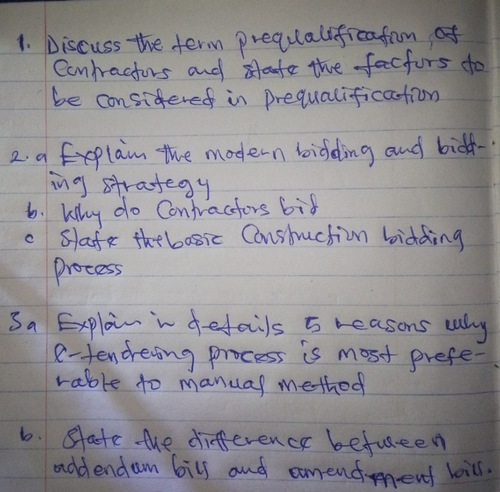 1. Discuss the term prequalification of
Contractors and state the factors to
be considered in prequalification
2. a Explain the modern bidding and bidd-
ing strategy
b. Why do Contractors bid
c State the basic Construction bidding
process
3a Explain in details 5 reasons why
e-tendreing process is most prefe-
rable to manual method
b. State the difference between
addendum bill and amendment bill.